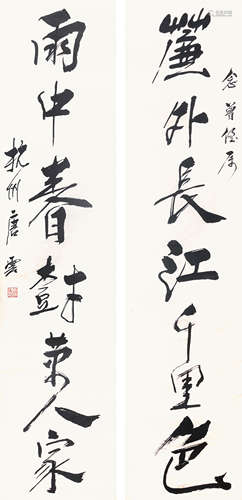 簾外長江千里色
雨中春樹萬人家
杭州唐雲